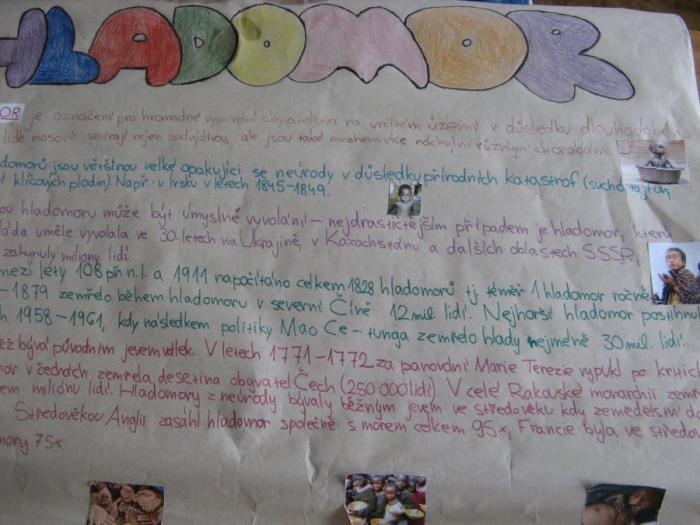 HLADOMOR
OR je označení pro hromadné vymírání obyvatelstva na určitém území v důsledku dlouhodobé
lidé masově umírají nejen podvýživou, ale jsou také mnohem více náchylní různým chorobám.
domorů jsou většinou velké opakující se neúrody v důsledku přírodních katastrof (sucho, tajfun,
klíčových plodin). Např. v Irsku v letech 1845-1849.
ou hladomoru může být úmyslné vyvolání - nejdrastičtějším případem je hladomor, který
áda uměle vyvolala ve 30. letech na Ukrajině, v Kazachstánu a dalších oblastech SSSR,
zahynuly miliony lidí.
mezi léty 108 př. n. l. a 1911 napočítáno celkem 1828 hladomorů tj. téměř 1 hladomor ročně.
-1879 zemřelo během hladomoru v severní Číně 12 mil. lidí. Nejhorší hladomor postihnul
h 1958-1961, kdy následkem politiky Mao Ce-tunga zemřelo hlady nejméně 30 mil. lidí.
ež bývá původním jevem válek. V letech 1771-1772 za panování Marie Terezie vypukl po krutých
mor v čechách zemřela desetina obyvatel Čech (250 000 lidí). V celé Rakouské monarchii zemř
em miliónu lidí. Hladomory z neúrody bývaly běžným jevem ve středověku kdy zemědělství
Středověkou Anglii zasáhl hladomor společně s morem celkem 95x, Francie byla ve středov
mory 75x